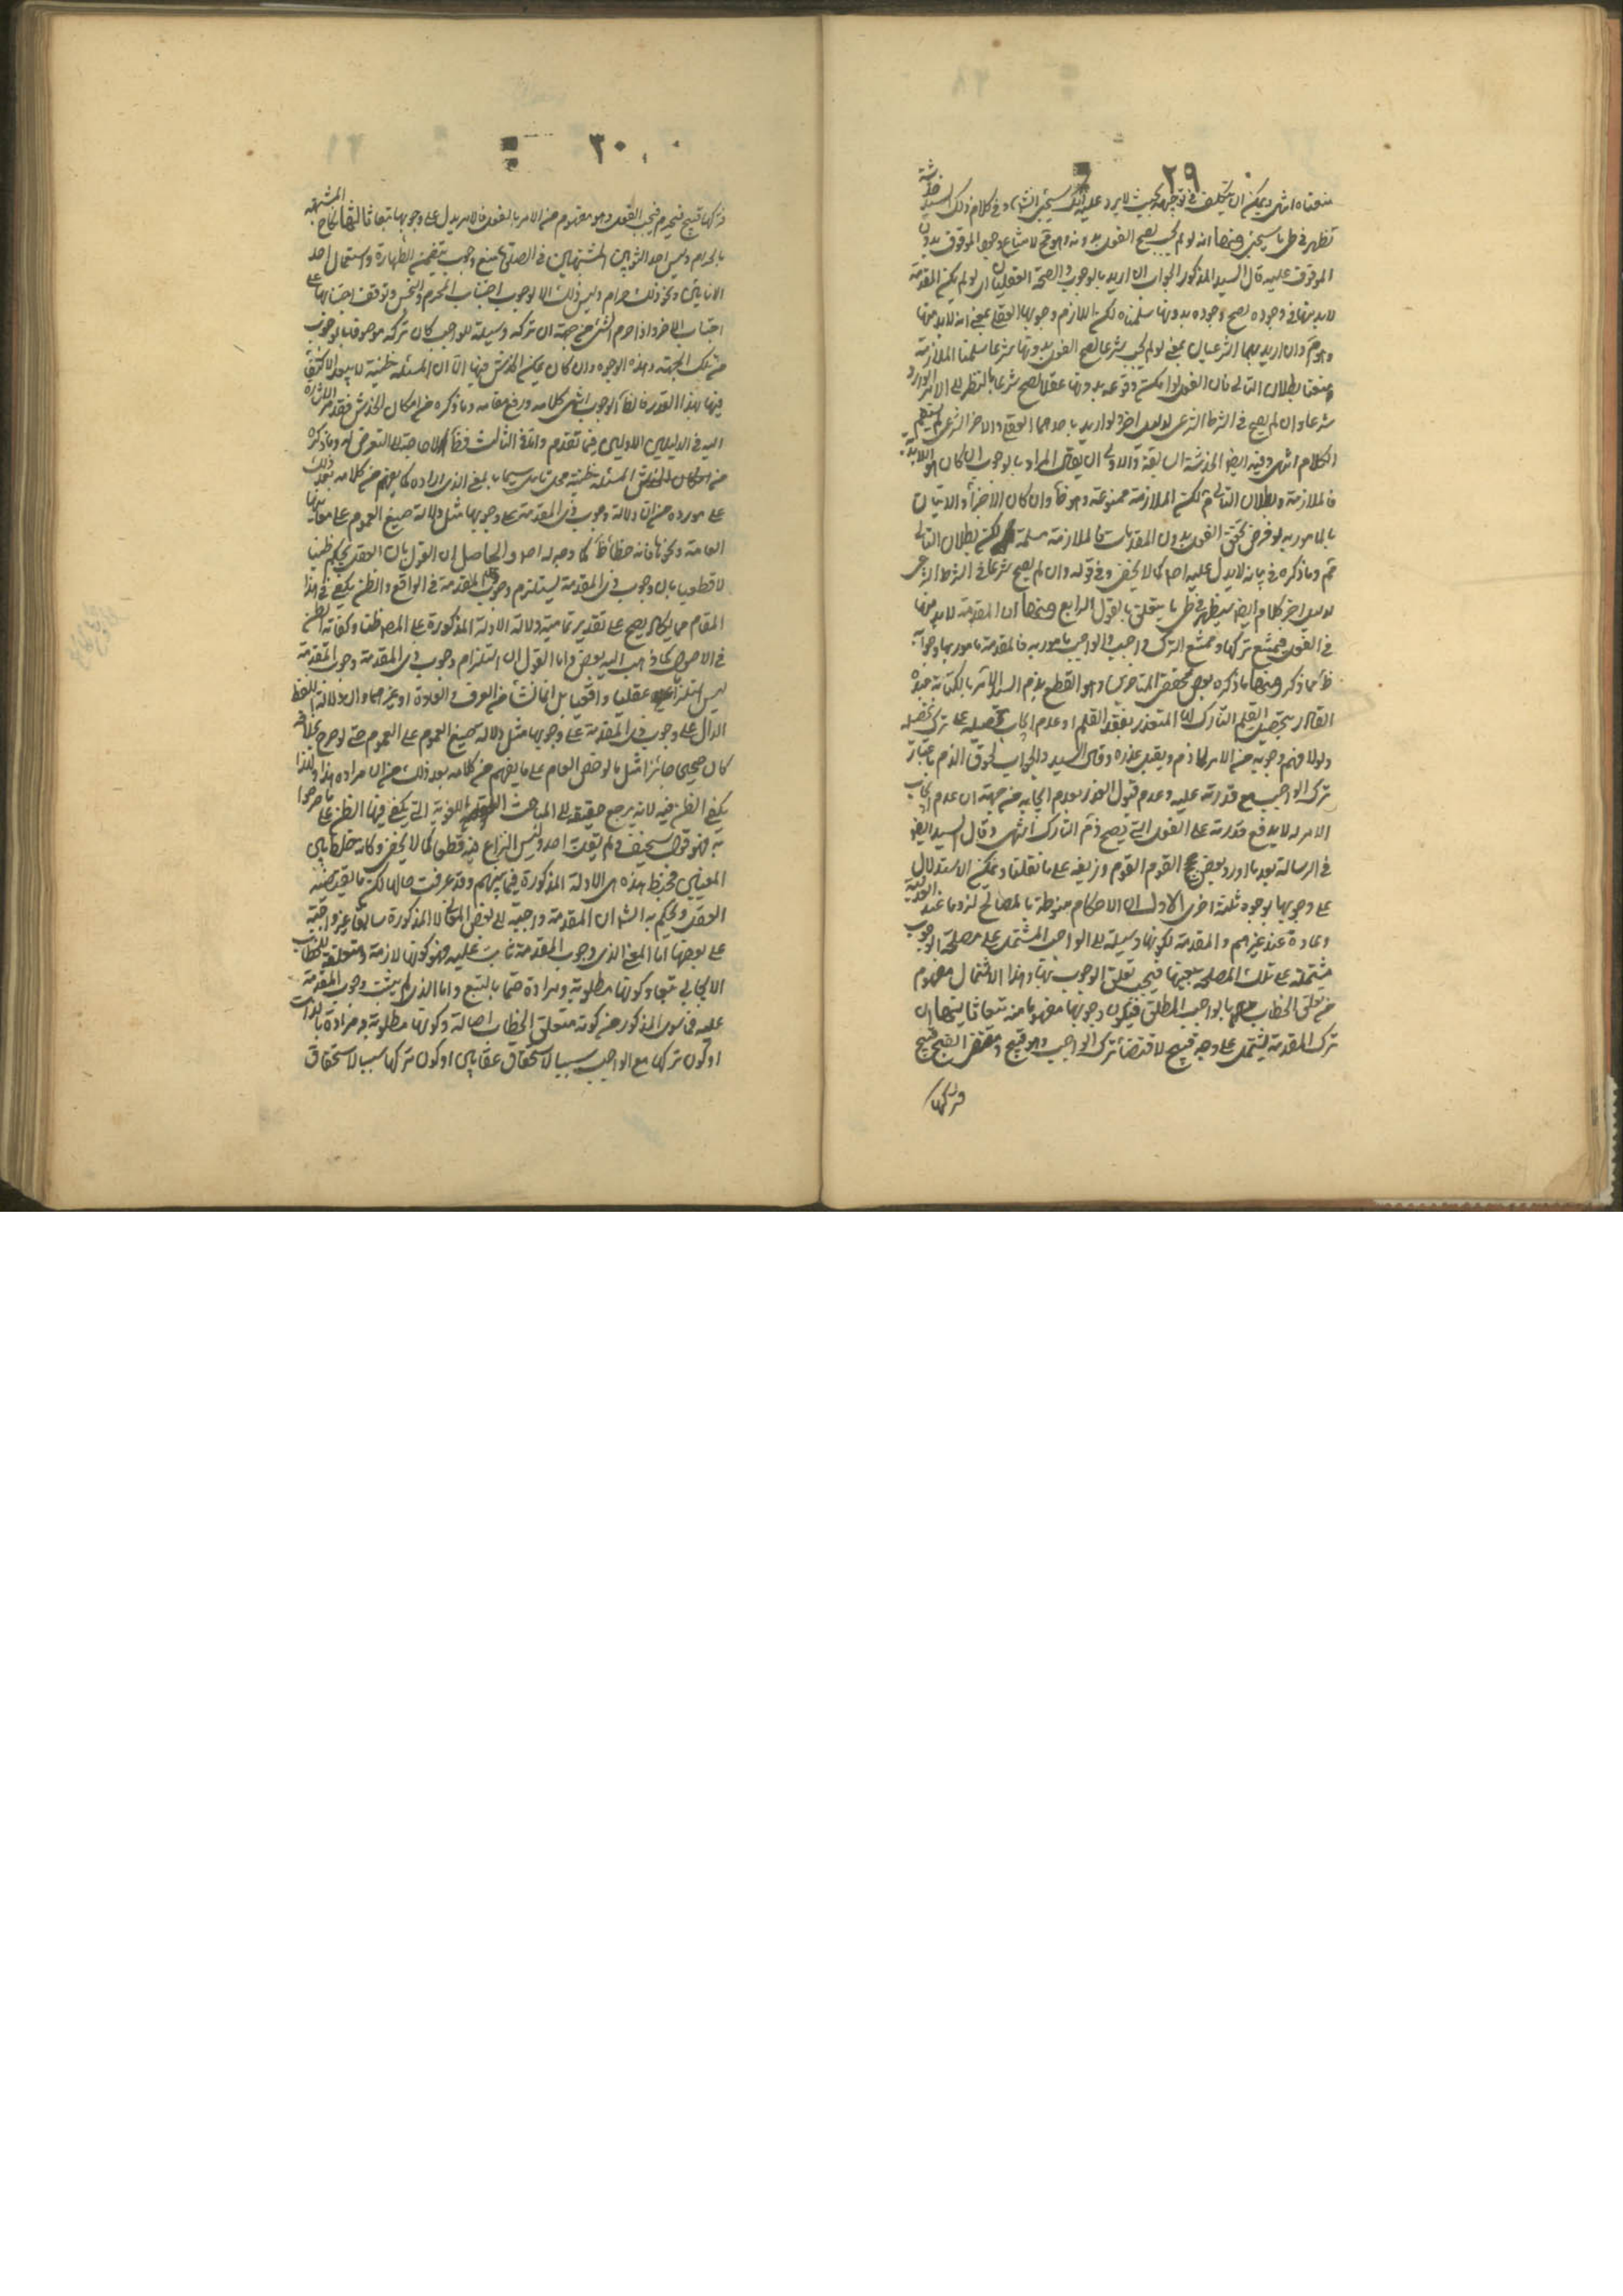 ٢٩
منعناه انتهى ويمكن ان يتكلف في توجيهه بحيث لا يرد عليه ذلك سيجئ انشاء وفي كلام ذلك السيد خدشة
تظهر في طي ما سيجئ ومنها انه لو لم يجب يصح الفعل بدونه وهو قبح لامتناع وجود الموقوف بدون
الموقوف عليه قال السيد المذكور الجواب ان اريد بالوجوب والصحة العقليان اي لو لم يكن المقدمة
لا بد منها في وجوده يصح وجوده بدونها سلمناه لكن اللازم وجوبها العقلي بمعنى انه لا بد منها
وهو م وان اريد بهما الشرعيان بمعنى لو لم يجب شرعا لصح الفعل بدونها شرعا سلمنا الملازمة
ومنعنا بطلان التالي فان الفعل لو امكن وقوعه بدونها عقلا لصح شرعا بالنظر الى الامر الوارد
شرعا وان لم يصح في الشرط الشرعي لدليل اخر ولو اريد باحدهما العقلي والاخر الشرعي لم يستقم
الكلام انتهى وفيه ايض الخدشة السابقة والاولى ان يقال المراد بالوجوب ان كان هو اللابدية
فالملازمة وبطلان التالي م لكن الملازمة ممنوعة وهو ظ وان كان الاخر والاتيان
بالمامور به لو فرض تحقق الفعل بدون المقدمات فالملازمة مسلمة لكن بطلان التالي
قم وما ذكره في بيانه لا يدل عليه اصلا كما لا يخفى وفي قوله وان لم يصح شرعا في الشرط الشرعي
لدليل اخر كلام ايض سيظهر في طي ما يتعلق بالقول الرابع ومنها ان المقدمة لا بد منها
في الفعل فيمتنع تركها وممتنع الترك واجب والواجب مامور به فالمقدمة مامور بها وجوابه
ظ مما ذكر ومنها ما ذكره بعض محققي المتاخرين وهو القطع بذم السيد الامر بالكتابة عبده
القادر بتحصيل القلم التارك لها المتعذر بفقد القلم او عدم ايجاب تحصيله على ترك تحصيله
ولولا فهم وجوبه من الامر لما ذم ويقبل عذره وقال السيد والجواب لحوق الذم باعتبار
ترك الواجب مع قدرته عليه وعدم قبول العذر بعدم ايجابه من جهة ان عدم ايجاب
الامر له لا يدفع قدرته على الفعل التي يصح ذم التارك انتهى وقال السيد ايض
في الرسالة بعد ما اورد بعض حجج القوم وزيفه على ما نقلنا ويمكن الاستدلال
على وجوبها بوجوه ثلثة اخرى الاول ان الاحكام منوطة بالمصالح لزوما عند العدلية
وعادة عند غيرهم والمقدمة لكونها وسيلة الى الواجب المشتمل على مصلحة الوجوب
مشتملة على تلك المصلحة بعينها فيجب تعلق الوجوب بها وهذا الاشتمال مفهوم
من تعلق الخطاب بالواجب المطلق فيكون وجوبها مفهوما منه تبعا ثانيها ان
ترك المقدمة يشتمل على وجه قبيح لاقتضائه ترك الواجب وهو قبيح ومقتضى القبيح قبيح
فتركها
٣٠
فتركها قبيح فيحرم فيجب الفعل وهو مفهوم من الامر بالفعل فالامر يدل على وجوبها تبعا ثالثها نكاح المشتبهه
بالحرام ولبس احد الثوبين المشتبهين في الصلوة مع وجوب تيقن الطهارة واستعمال احد
الانائين ونحو ذلك حرام وليس ذلك الا لوجوب اجتناب المحرم والنجس وتوقف اجتنابها على
اجتناب الاخر واذا حرم الشئ من جهة ان تركه وسيلة للواجب كان تركه موصوفا بالوجوب
من تلك الجهة وهذه الوجوه وان كان يمكن الخدش فيها الا ان المسئلة ظنية لا يبعد الاكتفاء
فيها بهذا القدر فالظاهر الوجوب انتهى كلامه ورفع مقامه وما ذكره من امكان الخدش فقد مر الاشارة
اليه في الدليلين الاولين فيما تقدم واما في الثالث فظاهر لا حاجة الى التعرض له وما ذكره
من كون المسئلة ظنية محل تامل سيما بالمعنى الذي اراده كما يفهم من كلامه بعد ذلك
على ما اورده من ان دلالة وجوب ذي المقدمة على وجوبها مثل دلالة صيغ العموم على معانيها
العامة ونحوها فانه خطأ ظ كما وجه له اصلا والحاصل ان القول بان العقل يحكم ظنيا
لا قطعيا بان وجوب ذي المقدمة يستلزم وجوب المقدمة في الواقع والظن يكفي في هذا
المقام مما يكاد يصح على تقدير تمامية دلالة الادلة المذكورة على المط ظنا وكفاية الظن
في الاصول كما ذهب اليه بعض واما القول بان استلزام وجوب ذي المقدمة وجوب المقدمة
ليس استلزاما عقليا واقعيا بل انما نشأ من العرف والعادة او غيرهما وان دلالة اللفظ
الدال على وجوب ذي المقدمة على وجوبها مثل دلالة صيغ العموم على العموم حتى لو صرح بخلافه
كان صحيحا جائزا مثل ما لو خص العام على ما يفهم من كلامه بعد ذلك من ان مراده هذا ولهذا
يكفي الظن فيه لانه يرجع حقيقة الى المباحث اللغوية التي يكفي فيها الظن على ما صرحوا
به فهو قول سخيف ولم يقل به احد وليس النزاع فيه قطعا كما لا يخفى وكانه خلط بين
المعنيين فخبط هذه هي الادلة المذكورة فيما بينهم وقد عرفت حالها لكن ما يقتضيه
العقل ويحكم به انشاء ان المقدمة واجبة لبعض المعاني المذكورة سابقا غير واجبة
على بعضها اما المعنى الذي وجوب المقدمة ثابت عليه فهو كونها لازمة ومتعلقة للخطاب
الايجابي تبعا وكونها مطلوبة ومرادة حتما بالتبع واما الذي لم يثبت وجوب المقدمة
عليه فما سوى المذكور من كونه متعلق الخطاب اصالة وكونها مطلوبة ومرادة بالذات
او كون تركها مع الواجب سببا لاستحقاق عقابين او كون تركها سببا لاستحقاق